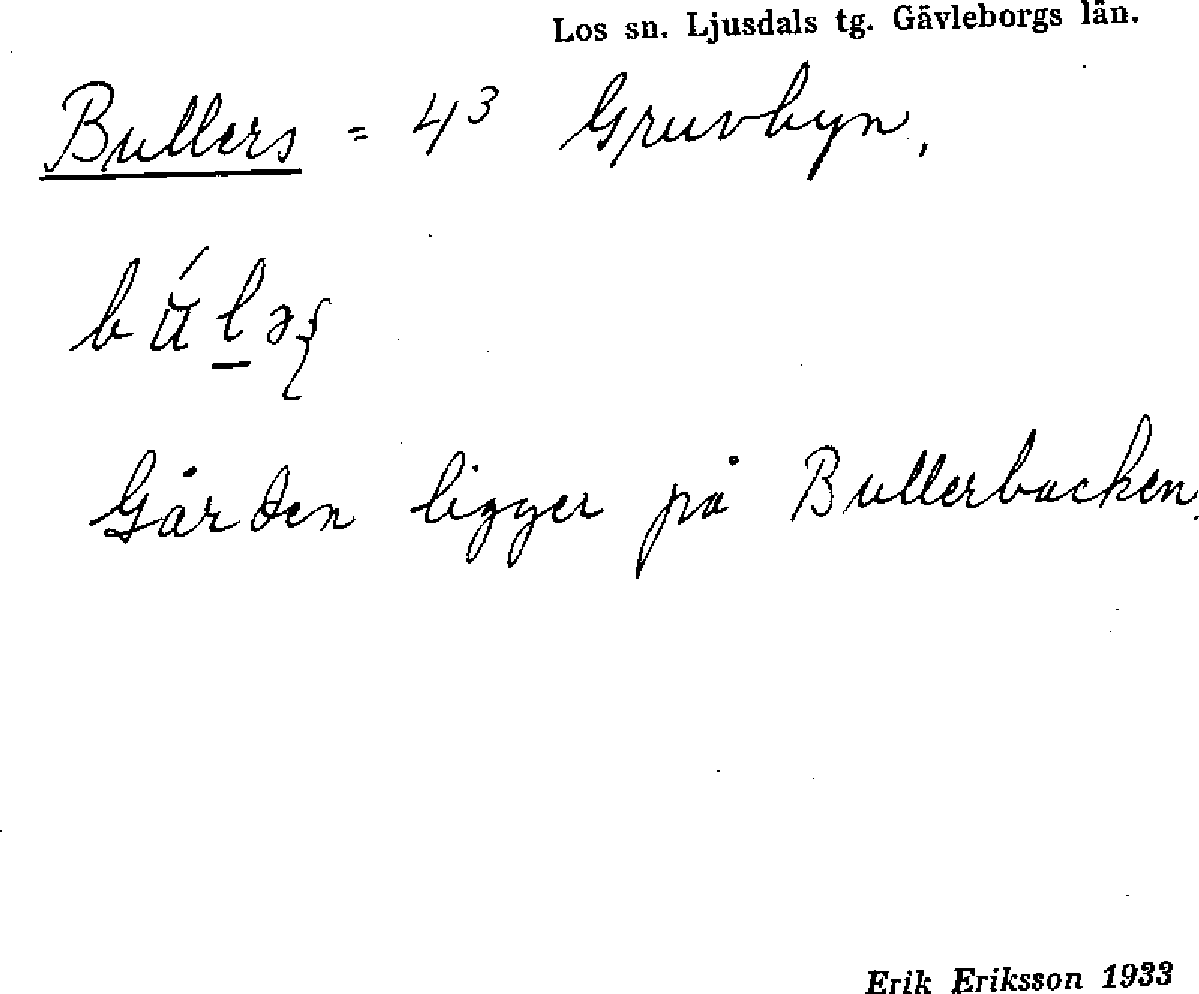 Los sn. Ljusdals tg. Gävleborgs län.
Bullers = 4³ Gruvbyn.
Gården ligger på Bullerbacken.
Erik Eriksson 1933